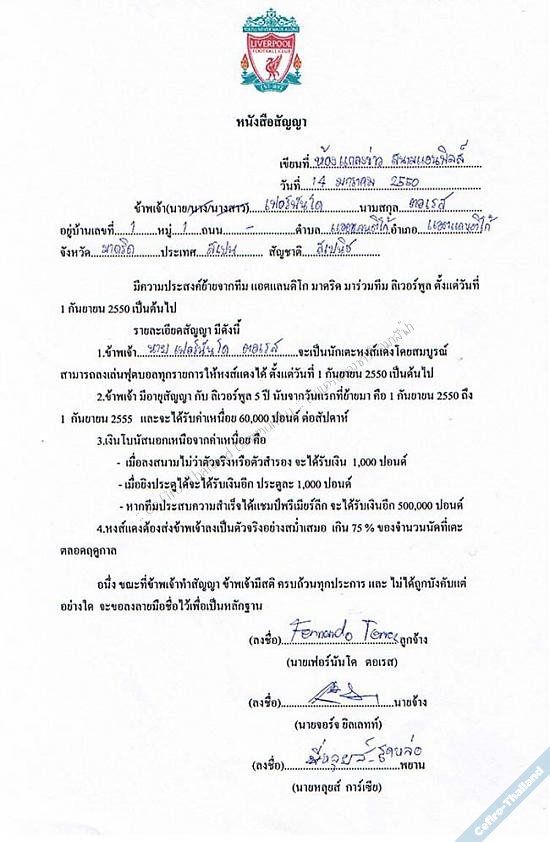 YOU'LL NEVER WALK ALONE
LIVERPOOL
FOOTBALL CLUB
EST·1892
หนังสือสัญญา
เขียนที่ ห้องแถลงข่าว สนามแอนฟิลด์
วันที่ 14 มกราคม 2550
ข้าพเจ้า(นาย/นาง/นางสาว) เฟอร์นันโด นามสกุล ตอเรส
อยู่บ้านเลขที่ 1 หมู่ 1 ถนน - ตำบล แอตแลนติโก้ อำเภอ แอตแลนติโก้
จังหวัด มาดริด ประเทศ สเปน สัญชาติ สเปนิช
มีความประสงค์ย้ายจากทีม แอตแลนติโก มาดริด มาร่วมทีม ลิเวอร์พูล ตั้งแต่วันที่
1 กันยายน 2550 เป็นต้นไป
รายละเอียดสัญญา มีดังนี้
1.ข้าพเจ้า นาย เฟอร์นันโด ตอเรส จะเป็นนักเตะหงส์แดงโดยสมบูรณ์
สามารถลงเล่นฟุตบอลทุกรายการให้หงส์แดงได้ ตั้งแต่วันที่ 1 กันยายน 2550 เป็นต้นไป
2.ข้าพเจ้า มีอายุสัญญา กับ ลิเวอร์พูล 5 ปี นับจากวันแรกที่ย้ายมา คือ 1 กันยายน 2550 ถึง
1 กันยายน 2555 และจะได้รับค่าเหนื่อย 60,000 ปอนด์ ต่อสัปดาห์
3.เงินโบนัสนอกเหนือจากค่าเหนื่อย คือ
- เมื่อลงสนามไม่ว่าตัวจริงหรือตัวสำรอง จะได้รับเงิน 1,000 ปอนด์
- เมื่อยิงประตูได้จะได้รับเงินอีก ประตูละ 1,000 ปอนด์
- หากทีมประสบความสำเร็จได้แชมป์พรีเมียร์ลีก จะได้รับเงินอีก 500,000 ปอนด์
4.หงส์แดงต้องส่งข้าพเจ้าลงเป็นตัวจริงอย่างสม่ำเสมอ เกิน 75 % ของจำนวนนัดที่เตะ
ตลอดฤดูกาล
อนึ่ง ขณะที่ข้าพเจ้าทำสัญญา ข้าพเจ้ามีสติ ครบถ้วนทุกประการ และ ไม่ได้ถูกบังคับแต่
อย่างใด จะขอลงลายมือชื่อไว้เพื่อเป็นหลักฐาน
(ลงชื่อ) Fernando Torres ลูกจ้าง
(นายเฟอร์นันโด ตอเรส)
(ลงชื่อ) นายจ้าง
(นายจอร์จ ยิลเลทท์)
(ลงชื่อ) พยาน
(นายหลุยส์ การ์เซีย)
Cefiro-Thailand